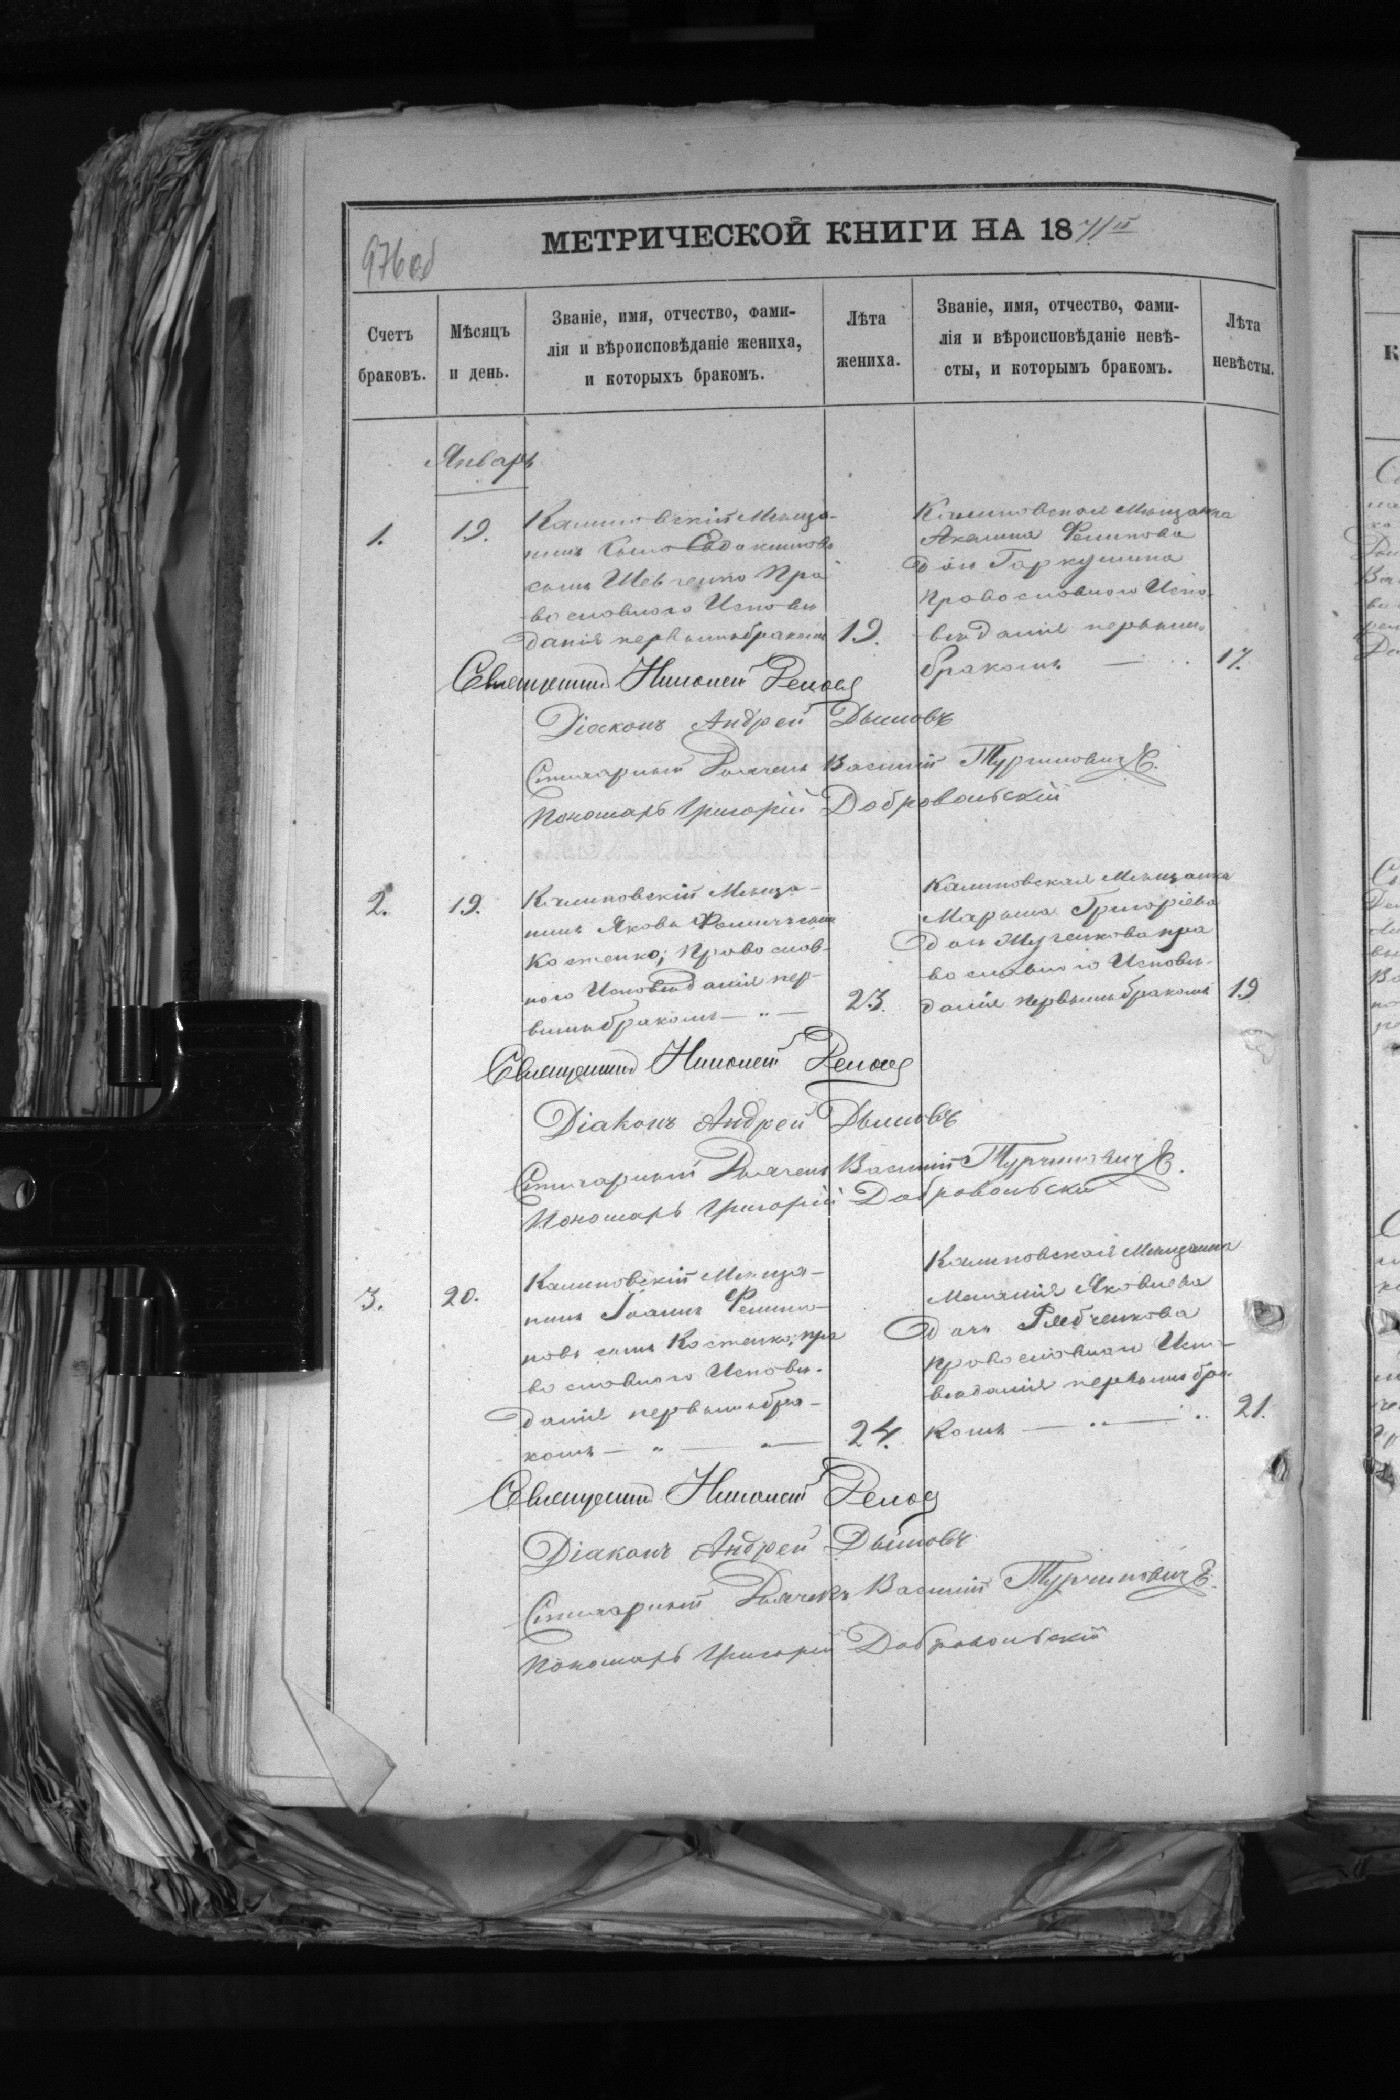 976 об
МЕТРИЧЕСКОЙ КНИГИ НА 18
Счетъ браковъ.
Мѣсяцъ и день.
Званіе, имя, отчество, фами-
лія и вѣроисповѣданіе жениха,
и которыхъ бракомъ.
Лѣта жениха.
Званіе, имя, отчество, фами-
лія и вѣроисповѣданіе невѣ-
сты, и которымъ бракомъ.
Лѣта невѣсты.
Январь
1.
19.
Калиновскій Мѣща-
нинъ Евдокимовъ
сынъ Шевченко Пра
вославнаго Исповѣ
данія первымъ бракомъ
19.
Калиновская Мѣщанка
Акилина Филипова
дочь Гаркушина
православнаго Испо-
вѣданія первымъ
бракомъ
17.
Священникъ Николай
Діаконъ Андрей Дымовъ
Стихарный Дьячекъ Василій Турчиновичъ.
Пономарь Григорій Добровольскій
2.
19.
Калиновскій Мѣща-
нинъ Яковъ сынъ
Костенко; Православ-
наго Исповѣданія пер-
вымъ бракомъ — " —
23.
Калиновская Мѣщанка
Марѳа Григоріева
дочь пра
вославнаго Исповѣ-
данія первымъ бракомъ
19
Священникъ Николай
Діаконъ Андрей Дымовъ
Стихарный Дьячекъ Василій Турчиновичъ.
Пономарь Григорій Добровольскій
3.
20.
Калиновскій Мѣща-
нинъ Іоаннъ Филип-
повъ сынъ Костенко; пра
вославнаго Исповѣ-
данія первымъ бра-
комъ — " — " —
24.
Калиновская Мѣщанка
Меланія Яковлева
дочь
православнаго Испо-
вѣданія первымъ бра-
комъ — " — "
21.
Священникъ Николай
Діаконъ Андрей Дымовъ
Стихарный Дьячекъ Василій Турчиновичъ.
Пономарь Григорій Добровольскій